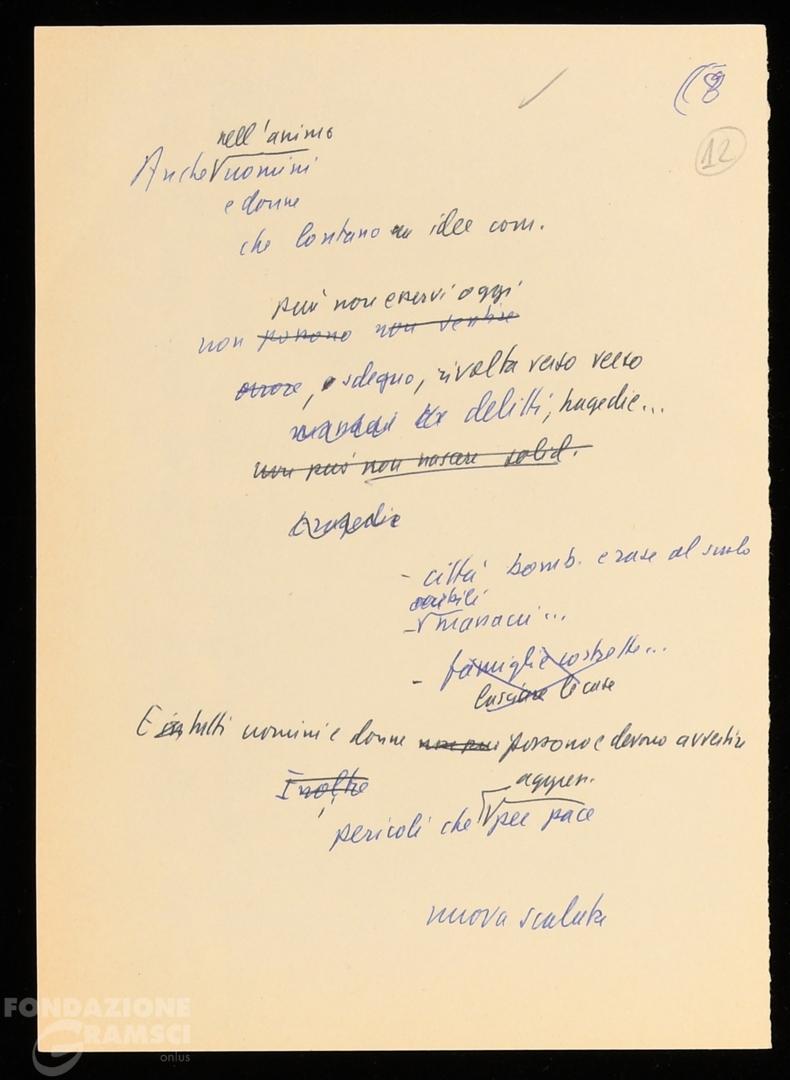 (8
12
nell'animo
Anche uomini
e donne
che lontano idee com.
può non esservi oggi
non possono non sentire
orrore, sdegno, rivolta verso verso
massacri delitti, tragedie...
non può non nascere solid.
tragedie
- città bomb. e rase al suolo
orribili
- massacri...
- famiglie costrette...
lasciare le case
E in tutti uomini e donne possono e devono avvertire
Inoltre
aggrav.
pericoli che per pace
nuova scalata
FONDAZIONE
GRAMSCI
onlus